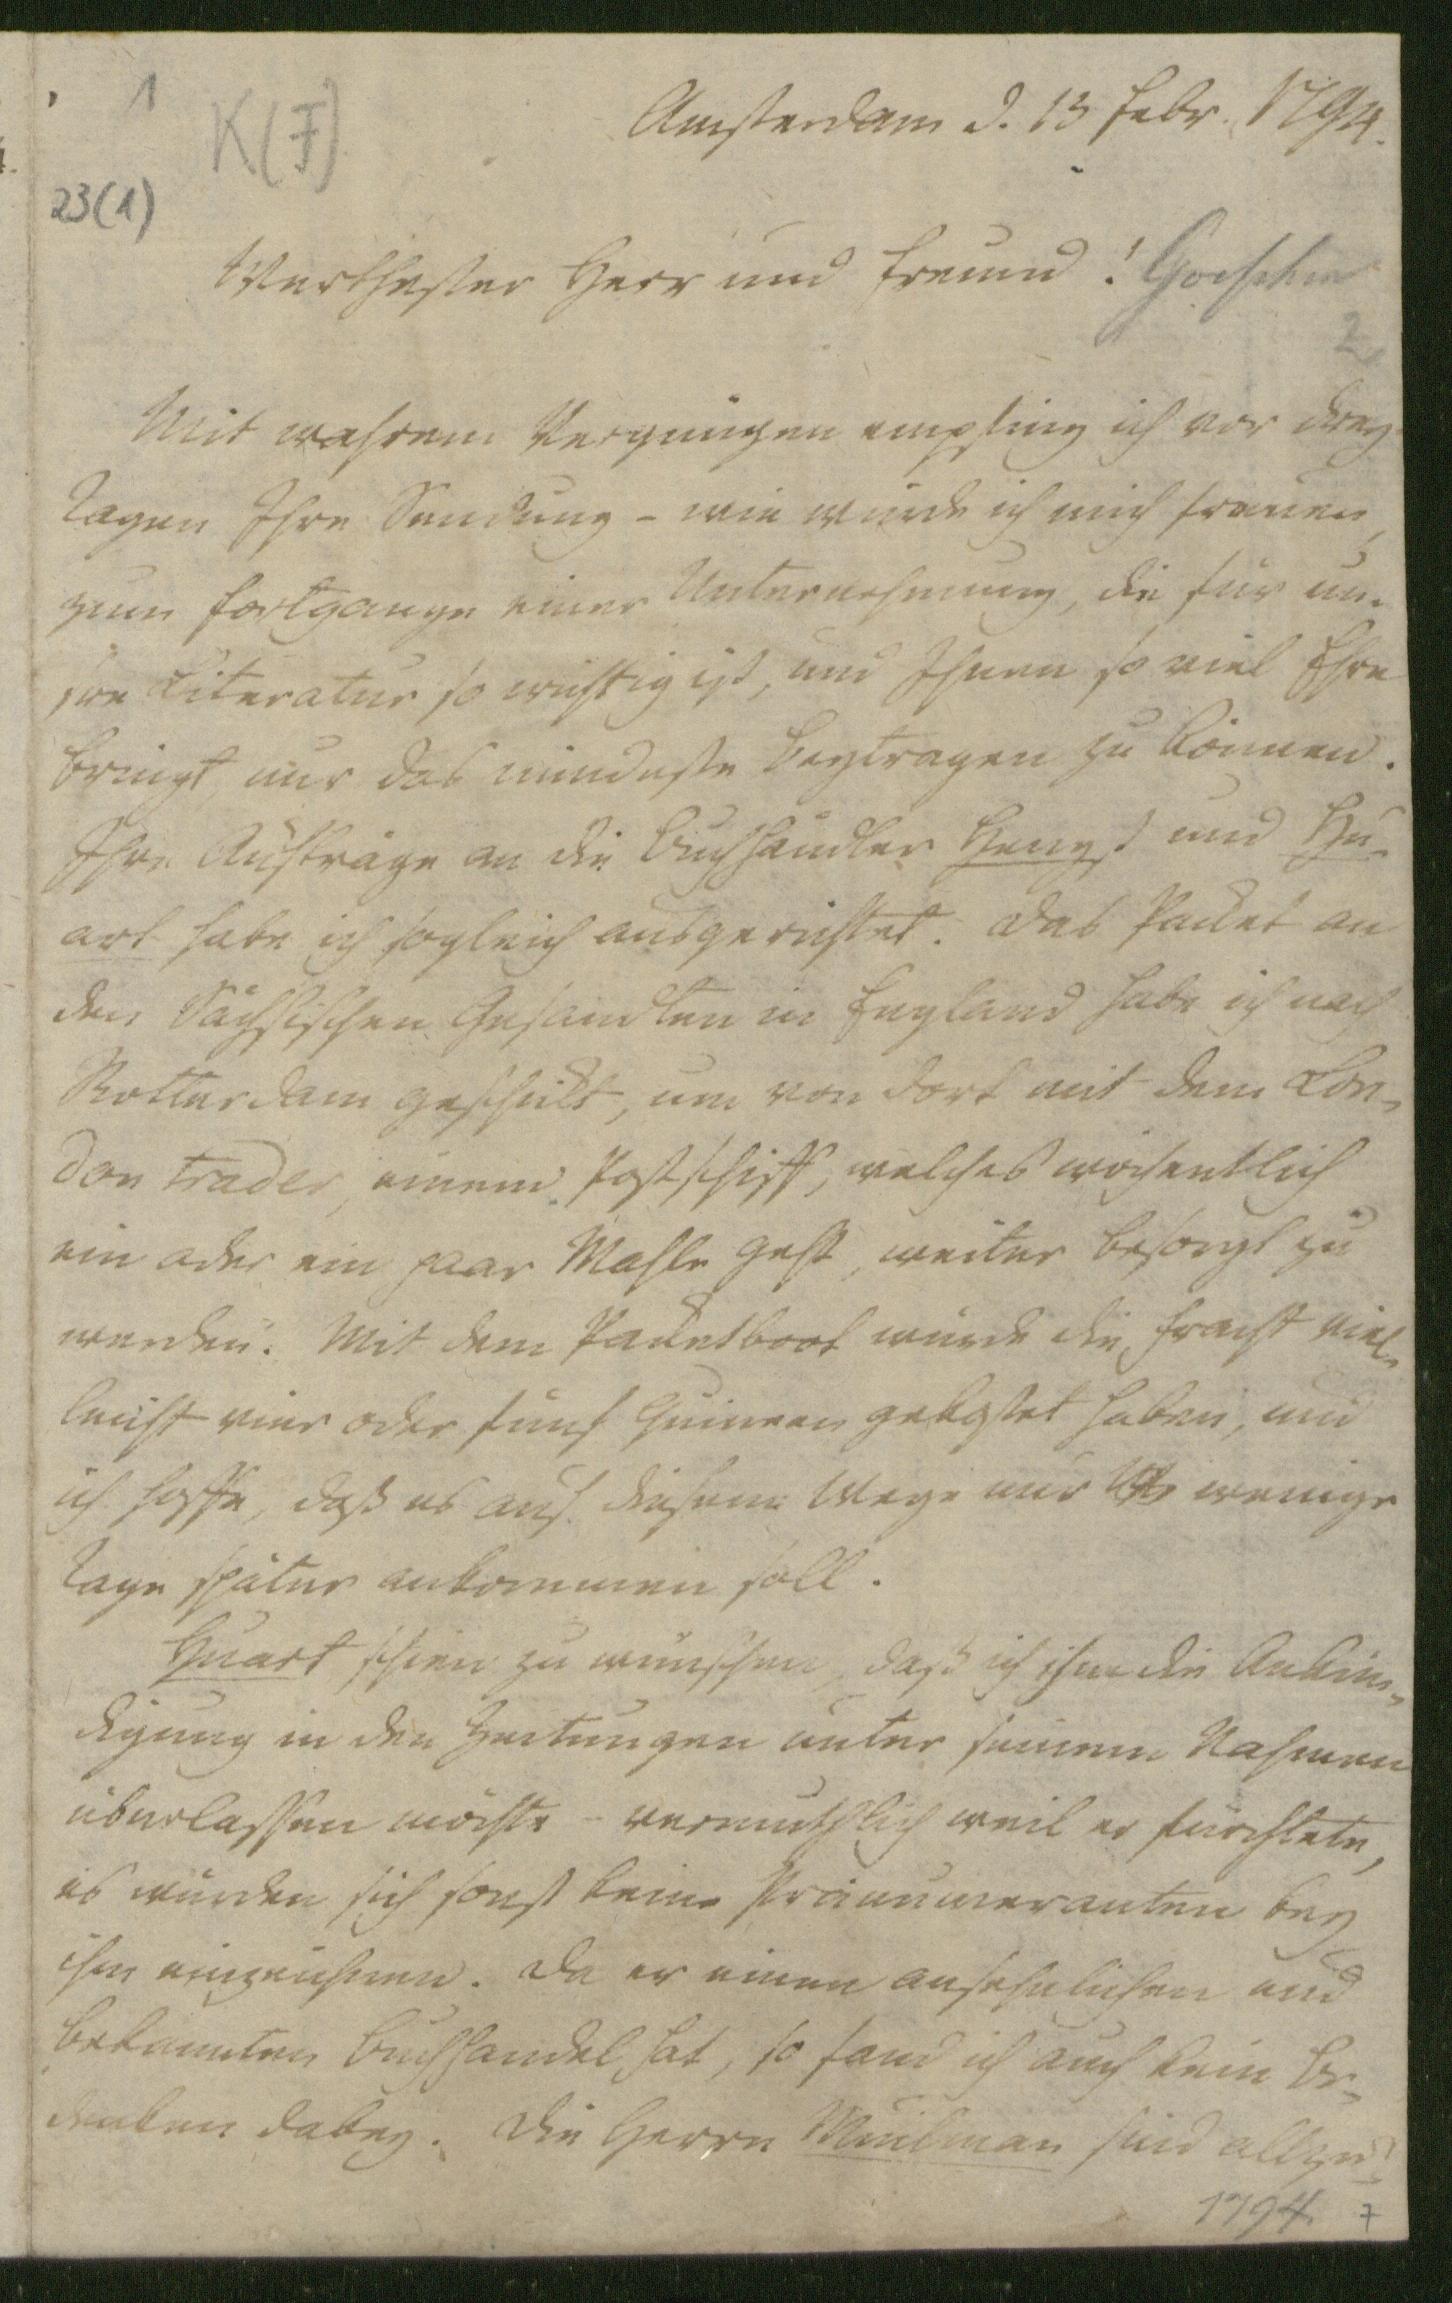 1
K(7)
Amsterdam d. 13 Febr. 1794.
23(1)
Werthester Herr und Freund! Goeschen
2
Mit wahrem Vergnügen empfing ich vor drey
Tagen Ihre Sendung – wie würde ich mich freuen,
zum Fortgange einer Unternehmung, die für un-
sre Literatur so wichtig ist, und Ihnen so viel Ehre
bringt, nur das mindeste beytragen zu können.
Ihre Aufträge an die Buchhändler Hengst und Hu-
art habe ich sogleich ausgerichtet. Das Packet an
den Sächsischen Gesandten in England habe ich nach
Rotterdam geschickt, um von dort mit dem Lon-
don trader, einem Postschiff, welches wöchentlich
ein oder ein paar Mahle geht, weiter besorgt zu
werden. Mit dem Packetboot würde die Fracht viel-
leicht vier oder fünf Guineen gekostet haben, und
ich hoffe, daß es auf diesem Wege nur wenige
Tage später ankommen soll.
Huart schien zu wünschen, daß ich ihm die Ankün-
digung in den Zeitungen unter seinem Nahmen
überlassen möchte – vermuthlich weil er fürchtete,
es würden sich sonst keine Pränumeranten bey
ihm einzeichnen. Da er einen ansehnlichen und
bekannten Buchhandel hat, so fand ich auch kein Be-
denken dabey. Die Herrn Muilman sind allzu
1794. 7